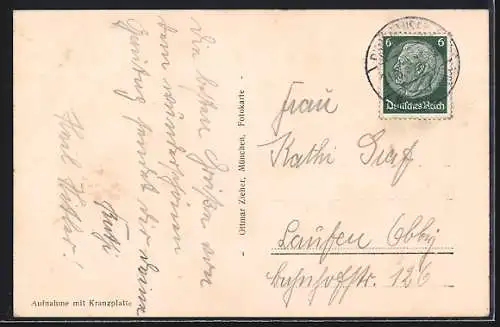 Die besten Grüße von
dem wunderschönen
sendet dir deine
Heil Hitler!
Aufnahme mit Kranzplatte
- Ottmar Zieher, München, Fotokarte -
6 6
Deutsches Reich
Frau
Kathi Graf
Laufen Obby
Bahnhofstr. 126